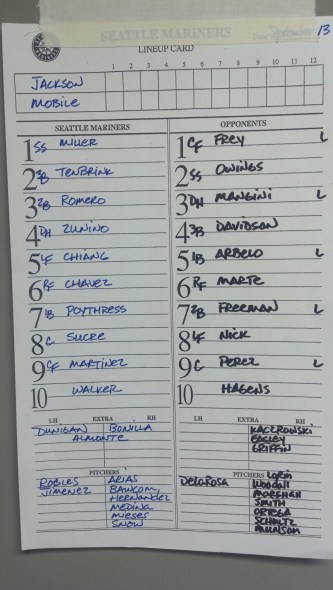 SEATTLE MARINERS
September 13
LINEUP CARD
1 2 3 4 5 6 7 8 9 10 11 12
JACKSON
MOBILE
SEATTLE MARINERS OPPONENTS
1 SS MILLER 1 CF FREY L
2 3B TENBRINK 2 SS OWINGS
3 2B ROMERO 3 DH MANGINI L
4 DH ZUNINO 4 3B DAVIDSON
5 LF CHIANG 5 1B ARBELO L
6 RF CHAVEZ 6 RF MARTE
7 1B POYTHRESS 7 2B FREEMAN L
8 C SUCRE 8 LF NICK
9 CF MARTINEZ 9 C PEREZ L
10 WALKER 10 HAGENS
LH EXTRA RH LH EXTRA RH
DUNIGAN BONILLA KACZROWSKI
ALMONTE EASLEY
GRIFFIN
PITCHERS PITCHERS LORIN
ROBLES ARIAS DELAROSA WOODALL
JIMENEZ BAWCOM,
HERNANDEZ SMITH
MEDINA ORTEGA
MIESES SCHULTZ
SNOW MUNSON